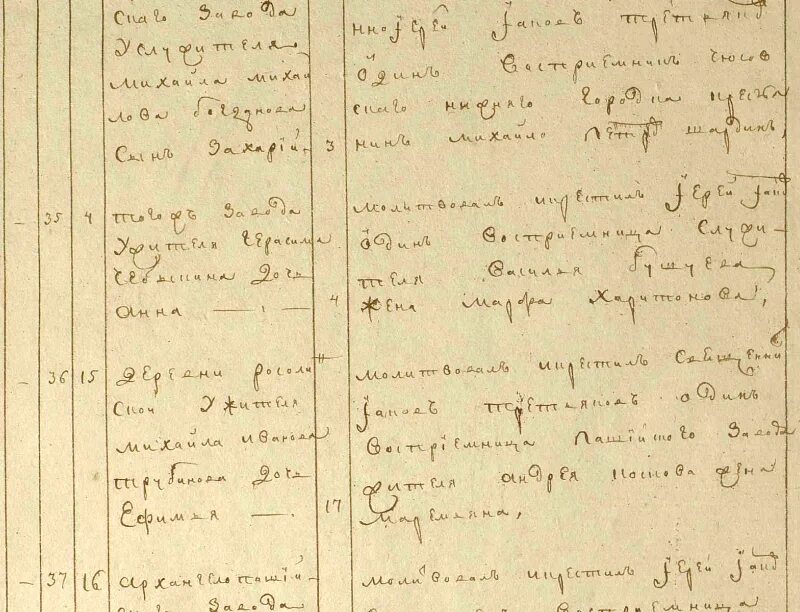 скаго Завода
Служителя
михайла михай
лова богданова
сынъ Захарий
3
ноіерей Iаковъ третьяко
одинъ восприемникъ чюсов
скаго нижняго городка креста
нинъ михайло петръ шардинъ,
35 4 тогожъ Завода
Ужителя Герасима
дочь
анна
4
молитвовалъ икрестилъ Iерей Iаков
одинъ восприемница Служи
теля василья бушуева
жена марфа харитонова,
36 15 деревни росоли
ской Ужителя
михайла иванова
трубинова дочь
Ефимья
17
молитвовалъ икрестилъ Священни
Iаковъ третьяковъ одинъ
восприемница пашійского Завода
жителя андрея попова жена
маремьяна,
37 16 архангелопашій
скаго Завода
молитвовалъ икрестилъ Iерей Iаков
восприемница